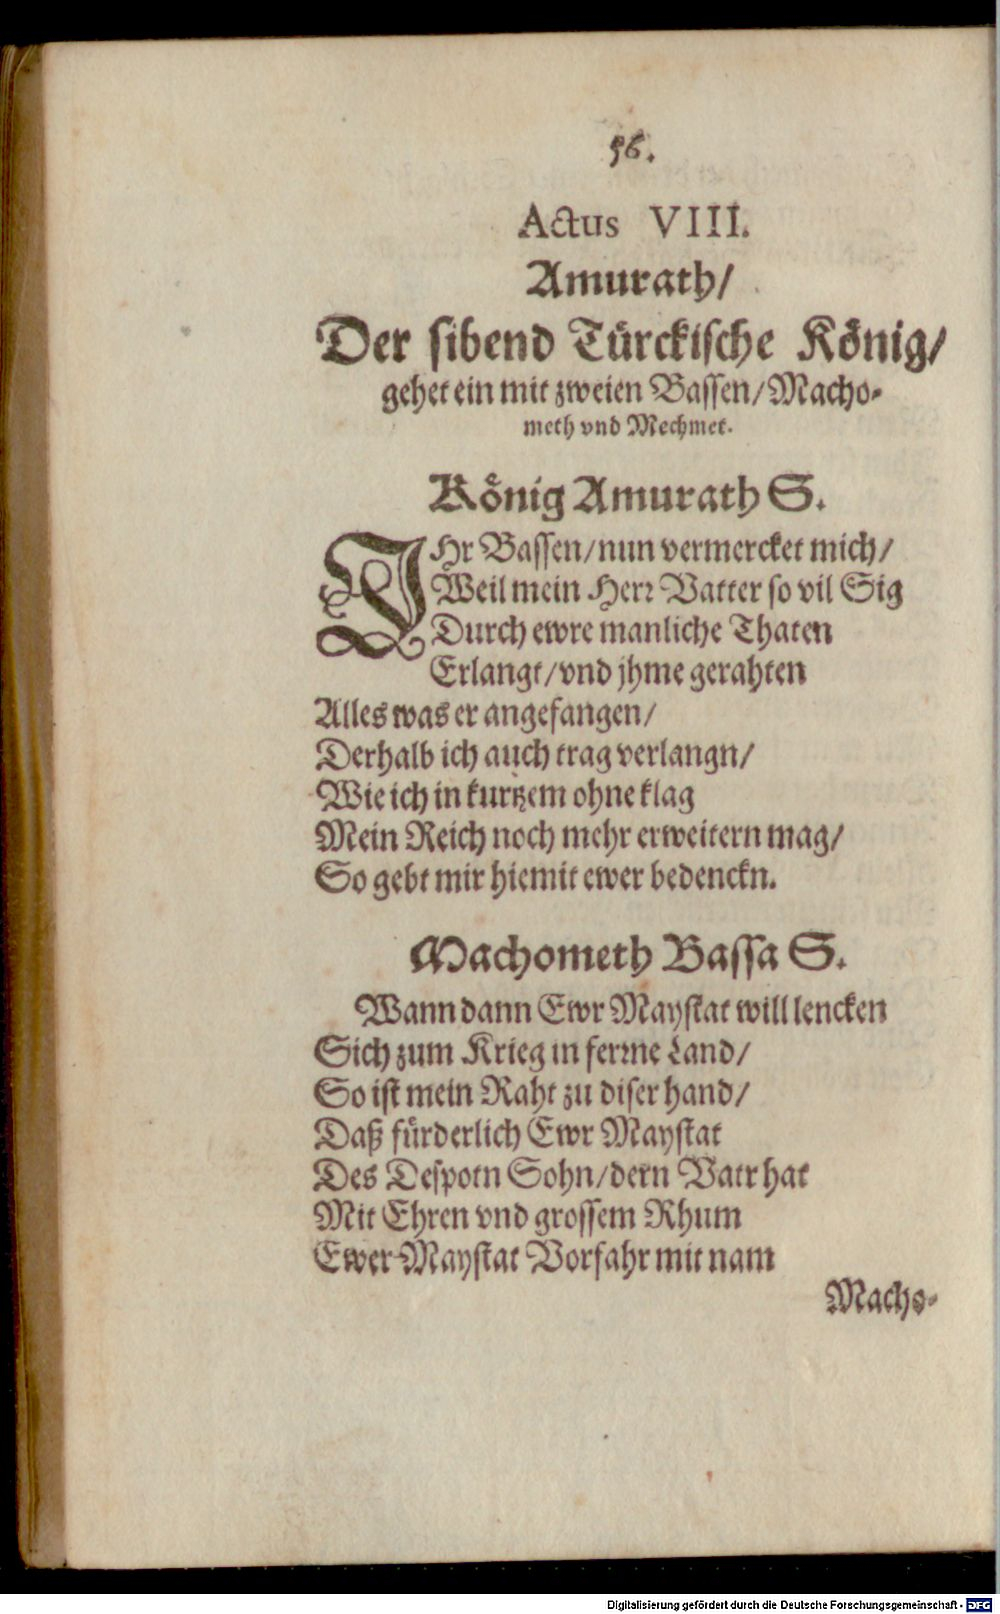 56.
Actus VIII.
Amurath/
Der sibend Türckische König/
gehet ein mit zweien Bassen/Macho-
meth vnd Mechmet.
König Amurath S.
IHr Bassen/nun vermercket mich/
Weil mein Herr Vatter so vil Sig
Durch ewre manliche Thaten
Erlangt/vnd jhme gerahten
Alles was er angefangen/
Derhalb ich auch trag verlangn/
Wie ich in kurtzem ohne klag
Mein Reich noch mehr erweitern mag/
So gebt mir hiemit ewer bedenckn.
Machometh Bassa S.
Wann dann Ewr Maystat will lencken
Sich zum Krieg in ferrne Land/
So ist mein Raht zu diser hand/
Daß fürderlich Ewr Maystat
Des Despotn Sohn/dern Vatr hat
Mit Ehren vnd grossem Rhum
Ewer Maystat Vorfahr mit nam
Macho-
Digitalisierung gefördert durch die Deutsche Forschungsgemeinschaft - DFG